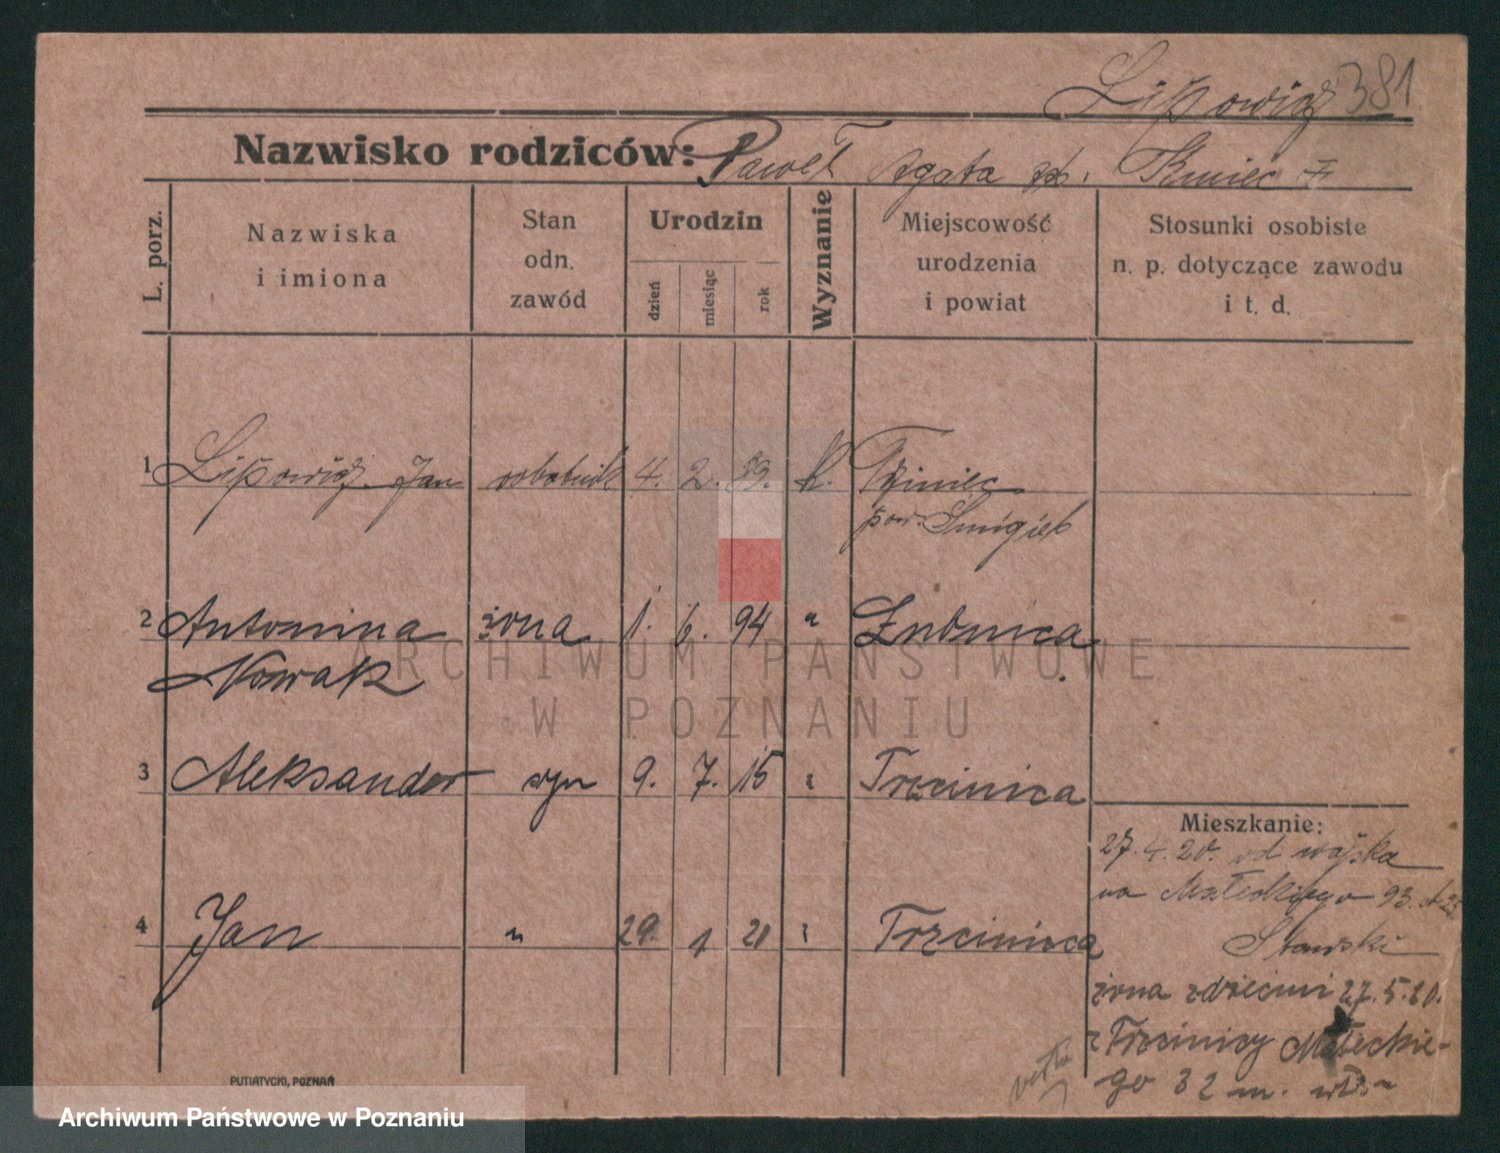 Lipowicz 381
Nazwisko rodziców: Paweł Agata Kmieć
L. porz.
Nazwiska
i imiona
Stan
odn.
zawód
Urodzin
dzień
miesiąc
rok
Wyznanie
Miejscowość
urodzenia
i powiat
Stosunki osobiste
n. p. dotyczące zawodu
i t. d.
1 Lipowicz Jan robotnik 4. 2. 89. k.
pow. Śmigiel
2 Antonina żona 1. 6. 94 "
Nowak
3 Aleksander syn 9. 7. 15 " Trzcinica
Mieszkanie:
27.4.20. od wojska
na Małeckiego 93.
4 Jan " 29. 1 20 " Trzcinica
Stawski
żona z dziećmi 27.5.20.
z Trzcinicy Małeckie-
go 32 m.
PUTIATYCKI, POZNAŃ
ARCHIWUM PAŃSTWOWE
W POZNANIU
Archiwum Państwowe w Poznaniu